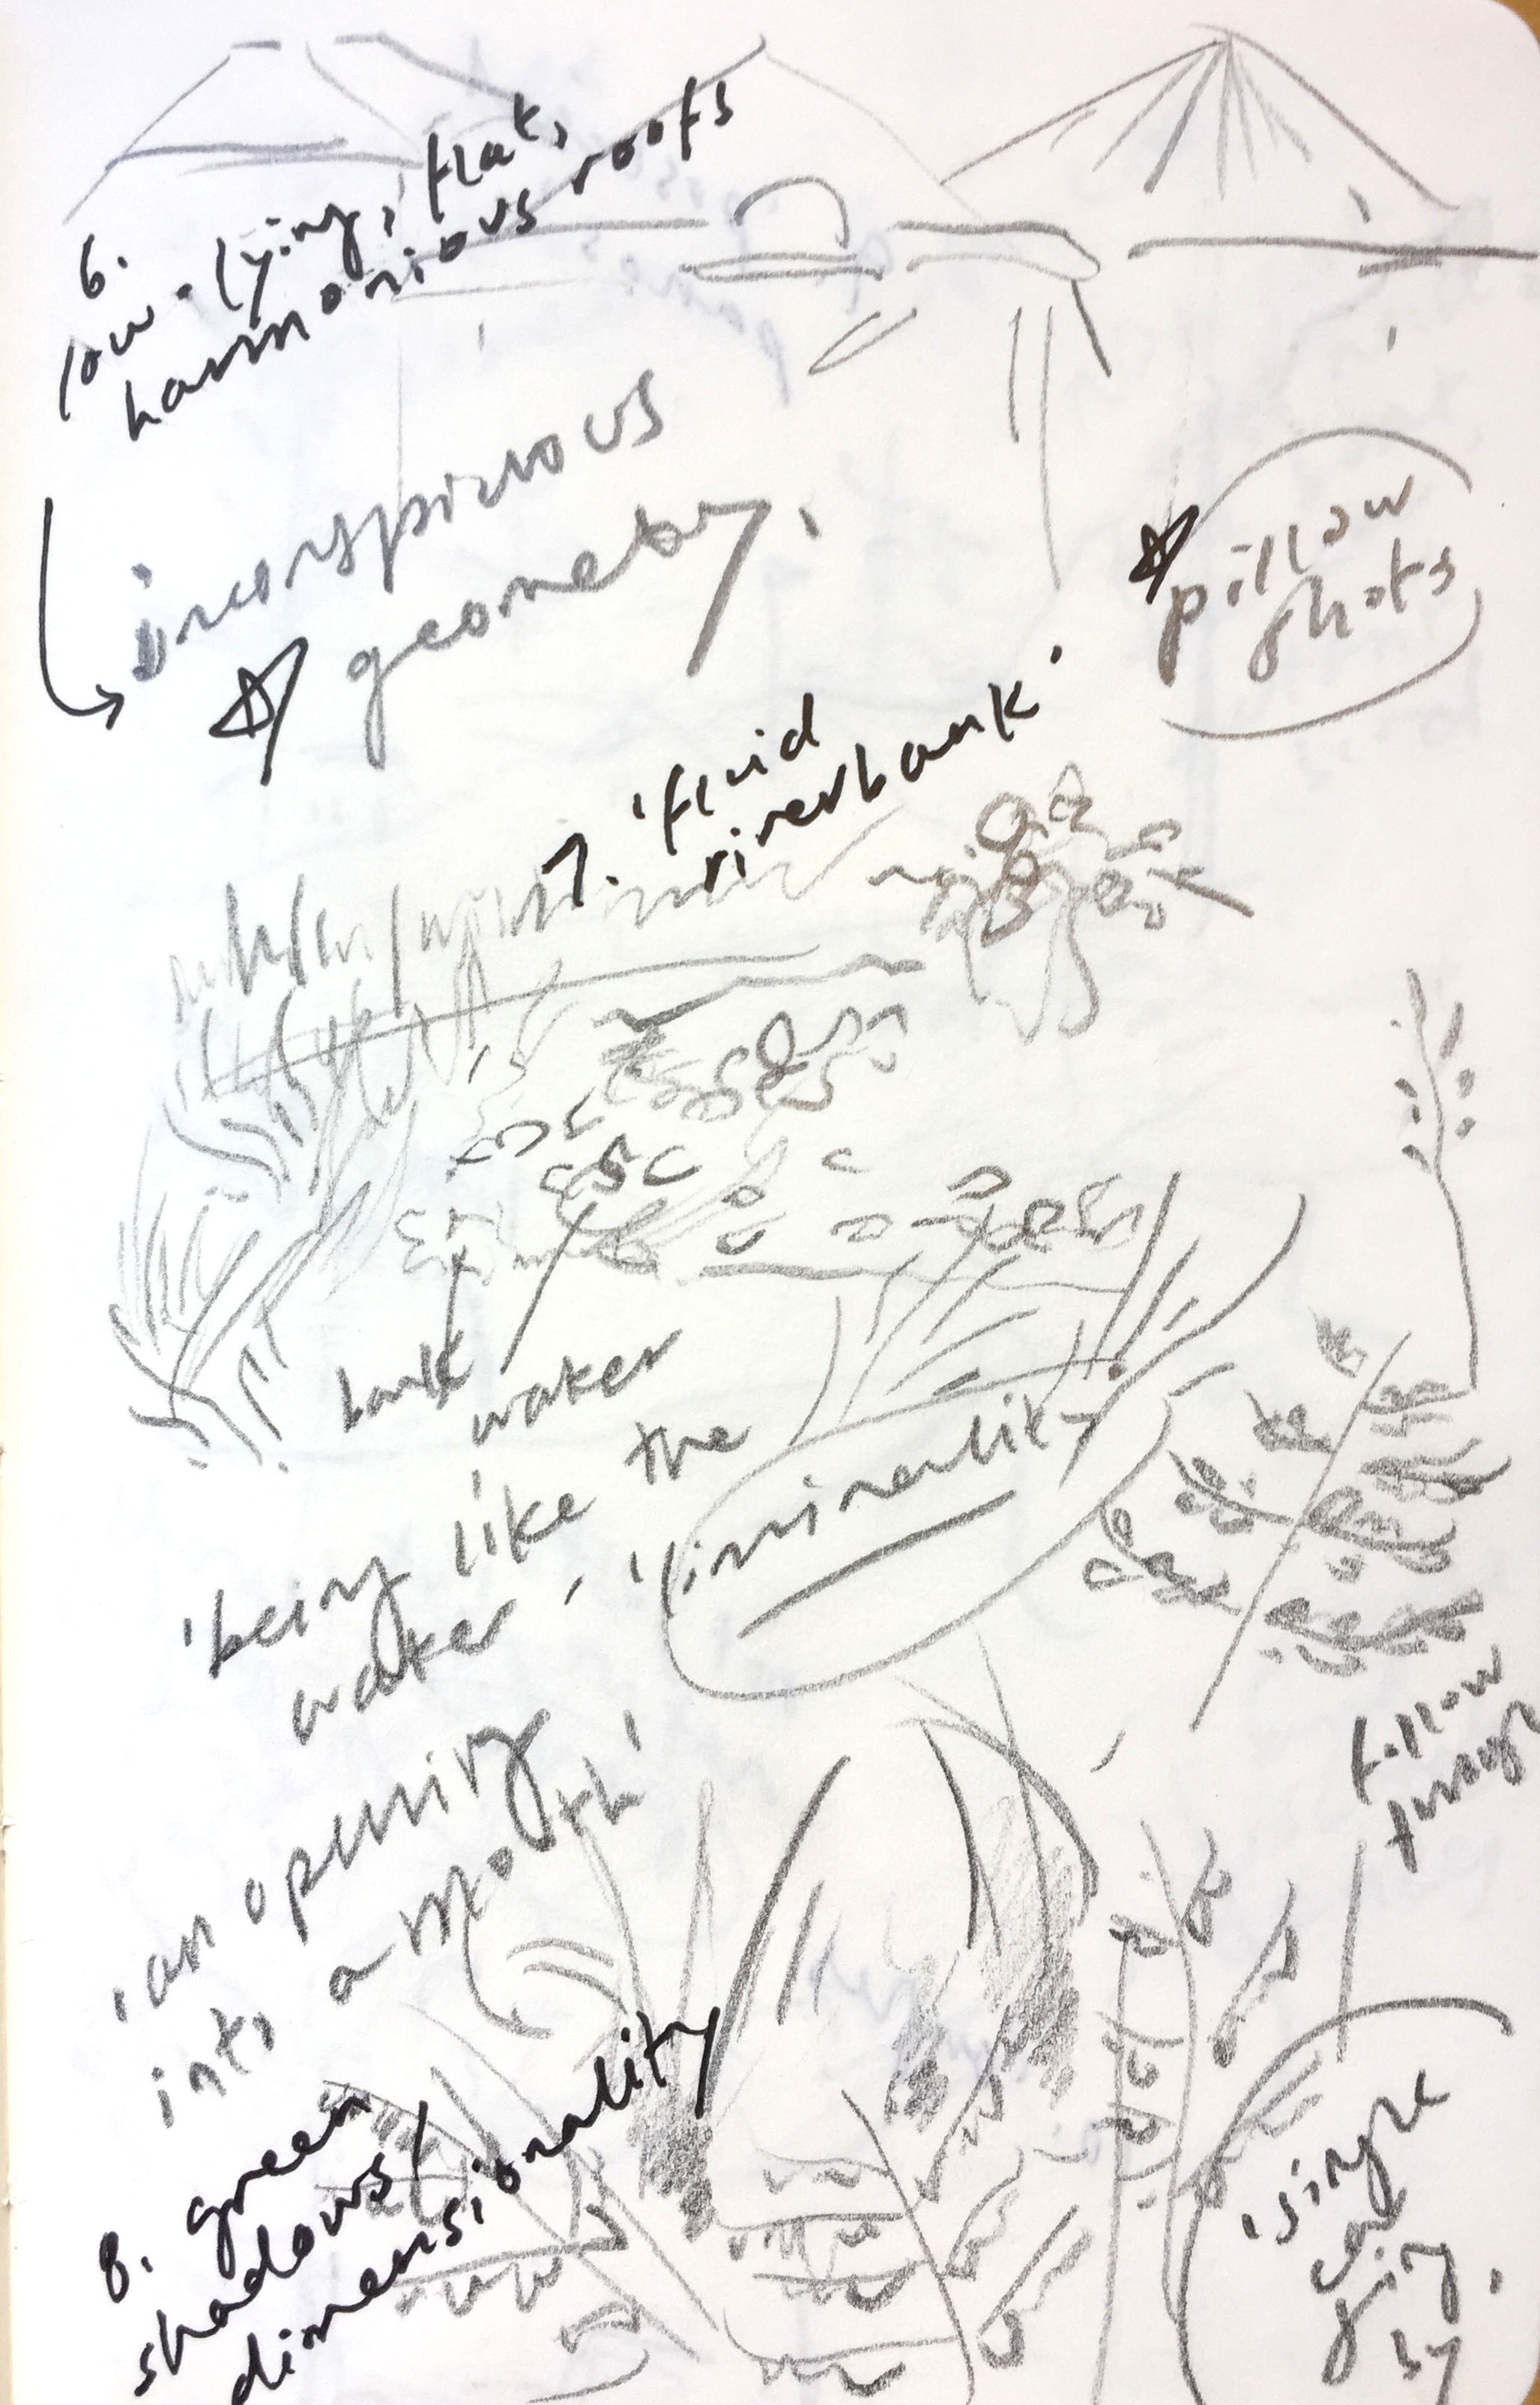 6.
low-lying, flat,
harmonious roofs
inconspicuous
geometry.
pillow
shots
7. 'fluid
riverbank'
bank / water
'being like the
water', 'liminality'
'an opening
into a mouth'
8. green
shadows /
dimensionality
'single
going
by